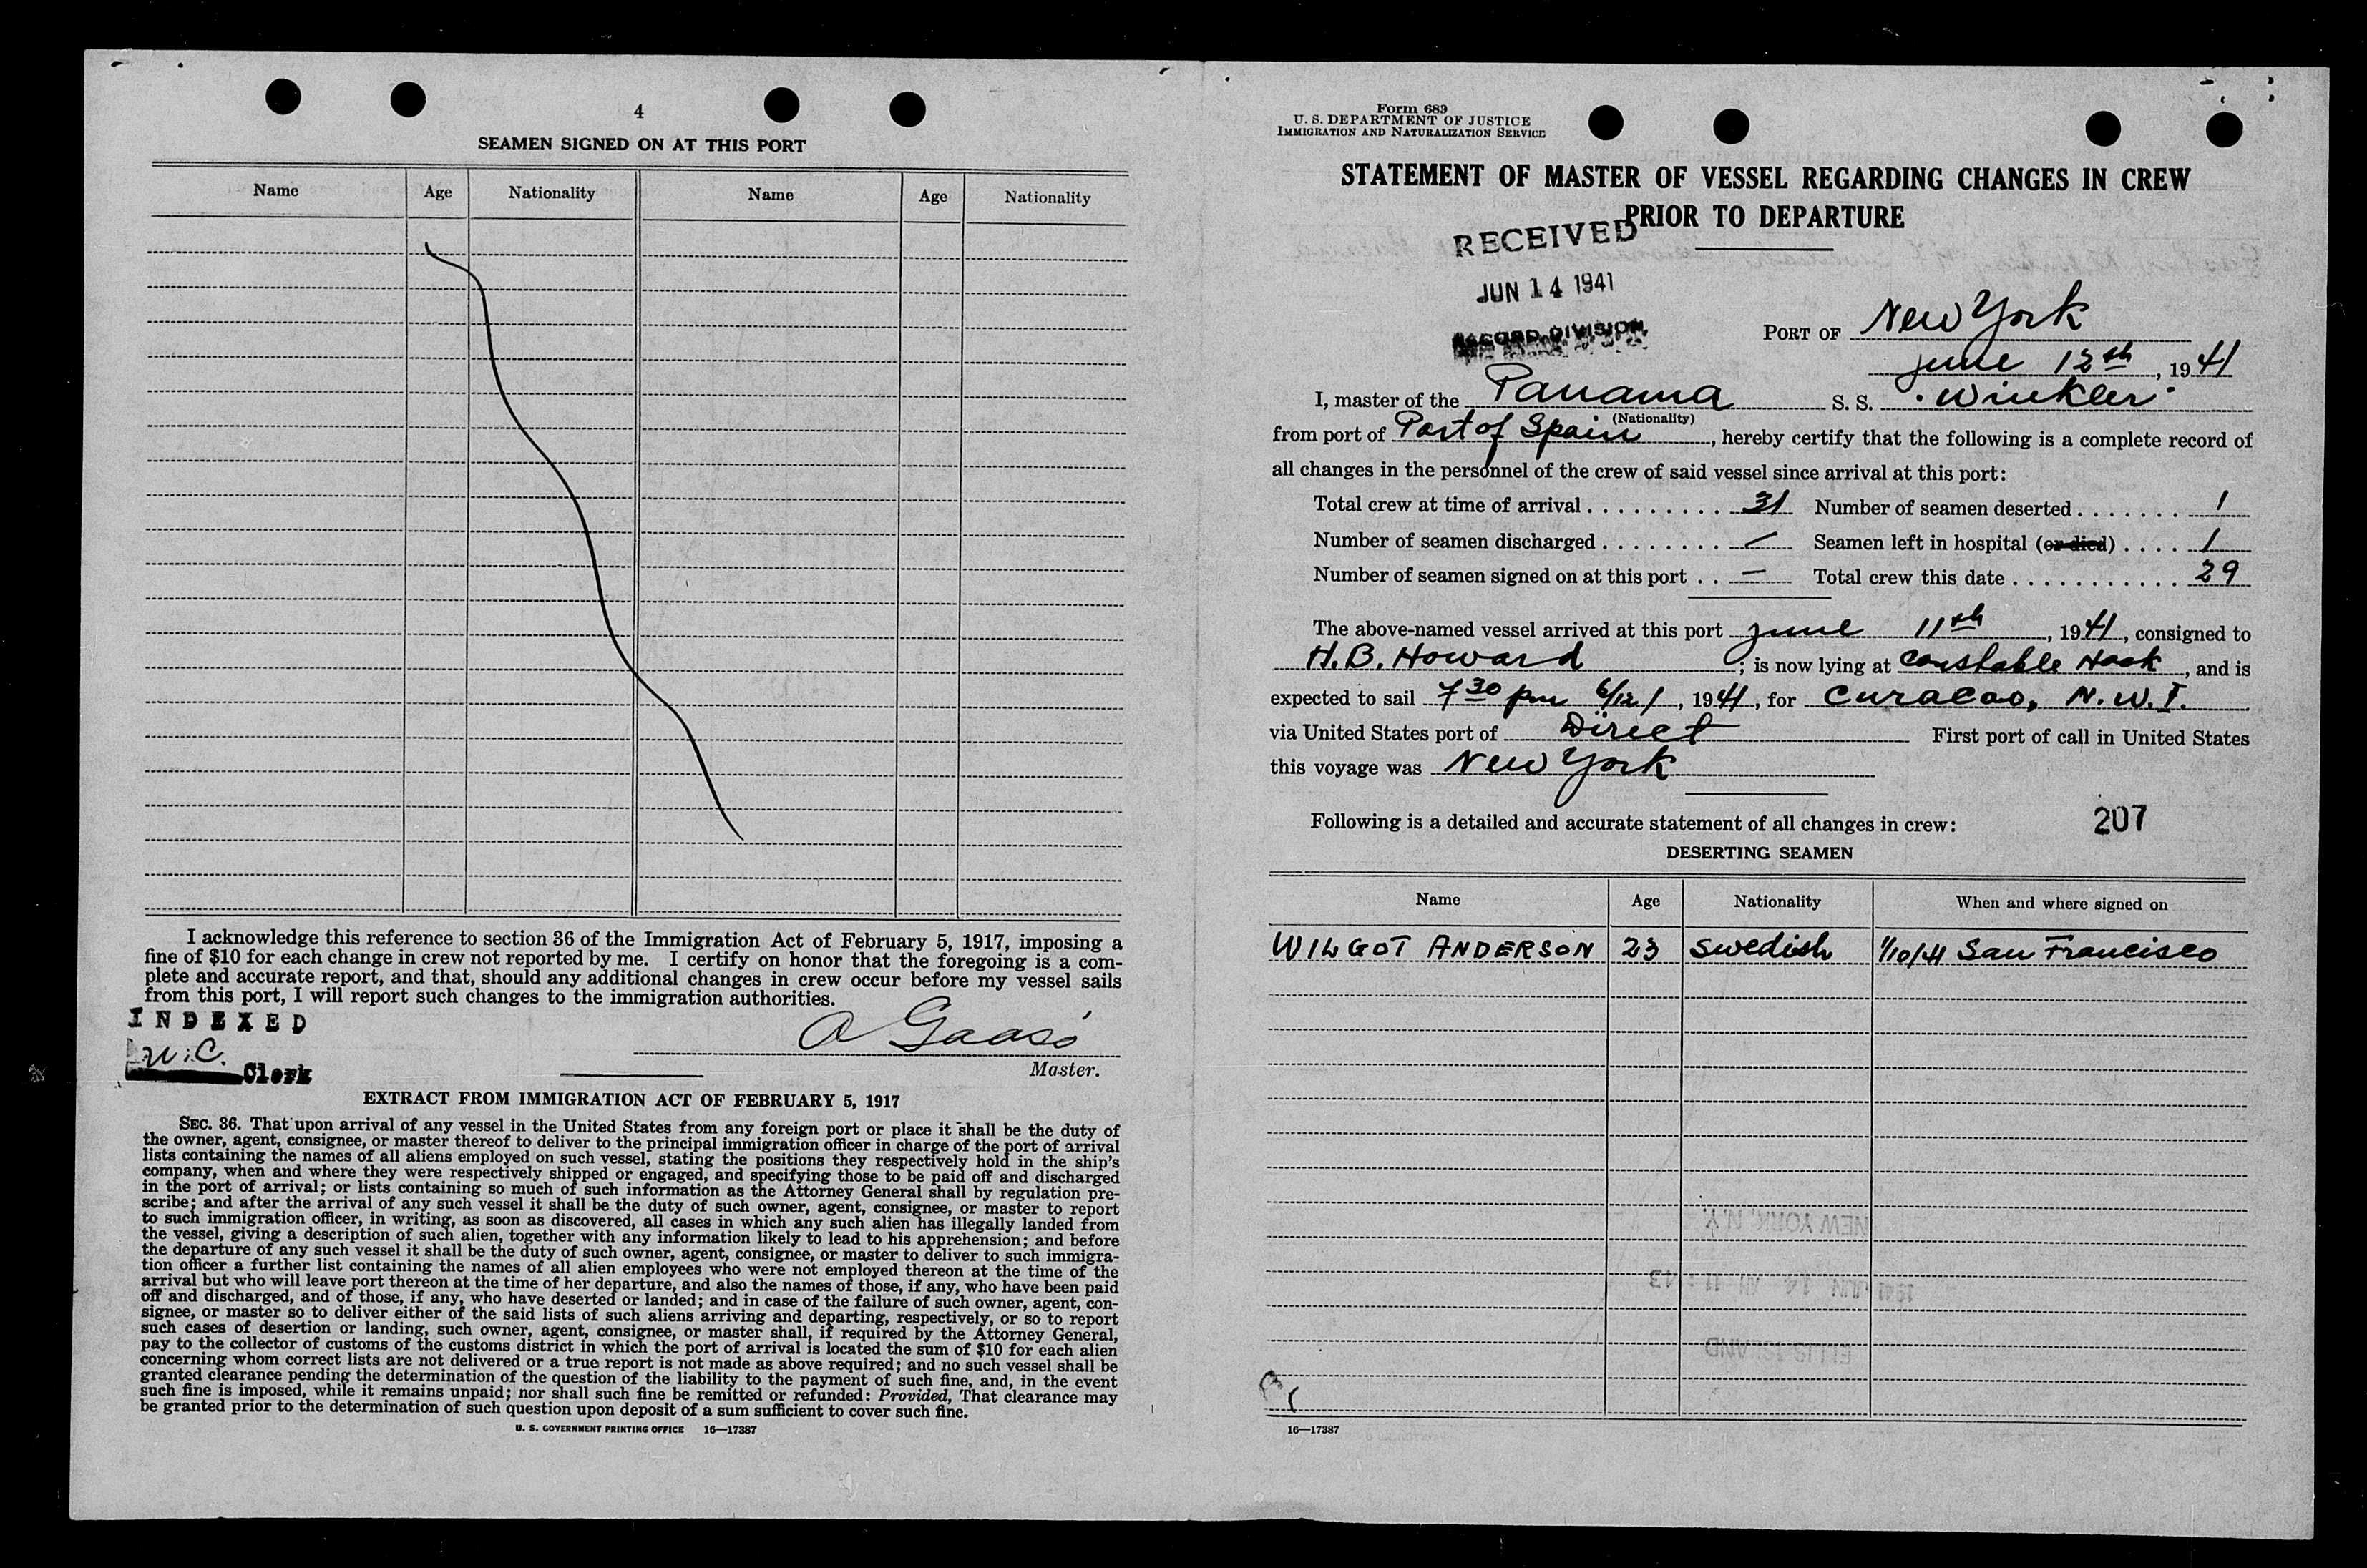 4
SEAMEN SIGNED ON AT THIS PORT
Name Age Nationality Name Age Nationality
I acknowledge this reference to section 36 of the Immigration Act of February 5, 1917, imposing a
fine of $10 for each change in crew not reported by me. I certify on honor that the foregoing is a com-
plete and accurate report, and that, should any additional changes in crew occur before my vessel sails
from this port, I will report such changes to the immigration authorities.
INDEXED
A Gaasö
Clerk
Master.
EXTRACT FROM IMMIGRATION ACT OF FEBRUARY 5, 1917
SEC. 36. That upon arrival of any vessel in the United States from any foreign port or place it shall be the duty of
the owner, agent, consignee, or master thereof to deliver to the principal immigration officer in charge of the port of arrival
lists containing the names of all aliens employed on such vessel, stating the positions they respectively hold in the ship's
company, when and where they were respectively shipped or engaged, and specifying those to be paid off and discharged
in the port of arrival; or lists containing so much of such information as the Attorney General shall by regulation pre-
scribe; and after the arrival of any such vessel it shall be the duty of such owner, agent, consignee, or master to report
to such immigration officer, in writing, as soon as discovered, all cases in which any such alien has illegally landed from
the vessel, giving a description of such alien, together with any information likely to lead to his apprehension; and before
the departure of any such vessel it shall be the duty of such owner, agent, consignee, or master to deliver to such immigra-
tion officer a further list containing the names of all alien employees who were not employed thereon at the time of the
arrival but who will leave port thereon at the time of her departure, and also the names of those, if any, who have been paid
off and discharged, and of those, if any, who have deserted or landed; and in case of the failure of such owner, agent, con-
signee, or master so to deliver either of the said lists of such aliens arriving and departing, respectively, or so to report
such cases of desertion or landing, such owner, agent, consignee, or master shall, if required by the Attorney General,
pay to the collector of customs of the customs district in which the port of arrival is located the sum of $10 for each alien
concerning whom correct lists are not delivered or a true report is not made as above required; and no such vessel shall be
granted clearance pending the determination of the question of the liability to the payment of such fine, and, in the event
such fine is imposed, while it remains unpaid; nor shall such fine be remitted or refunded: Provided, That clearance may
be granted prior to the determination of such question upon deposit of a sum sufficient to cover such fine.
U. S. GOVERNMENT PRINTING OFFICE 16—17387
Form 689
U. S. DEPARTMENT OF JUSTICE
IMMIGRATION AND NATURALIZATION SERVICE
STATEMENT OF MASTER OF VESSEL REGARDING CHANGES IN CREW
PRIOR TO DEPARTURE
RECEIVED
JUN 14 1941
RECORD DIVISION
PORT OF New York
June 12th, 1941
I, master of the Panama S. S. "Winkler"
(Nationality)
from port of Port of Spain, hereby certify that the following is a complete record of
all changes in the personnel of the crew of said vessel since arrival at this port:
Total crew at time of arrival . . . . . . . . . 31 Number of seamen deserted . . . . . . . 1
Number of seamen discharged . . . . . . . . — Seamen left in hospital (or died) . . . . 1
Number of seamen signed on at this port . . — Total crew this date . . . . . . . . . . . 29
The above-named vessel arrived at this port June 11th, 1941, consigned to
H.B. Howard; is now lying at Constable Hook, and is
expected to sail 7 30 pm 6/12/, 1941, for Curacao, N.W.I.
via United States port of Direct First port of call in United States
this voyage was New York
Following is a detailed and accurate statement of all changes in crew: 207
DESERTING SEAMEN
Name Age Nationality When and where signed on
WILGOT ANDERSON 23 Swedish 1/10/41 San Francisco
16—17387